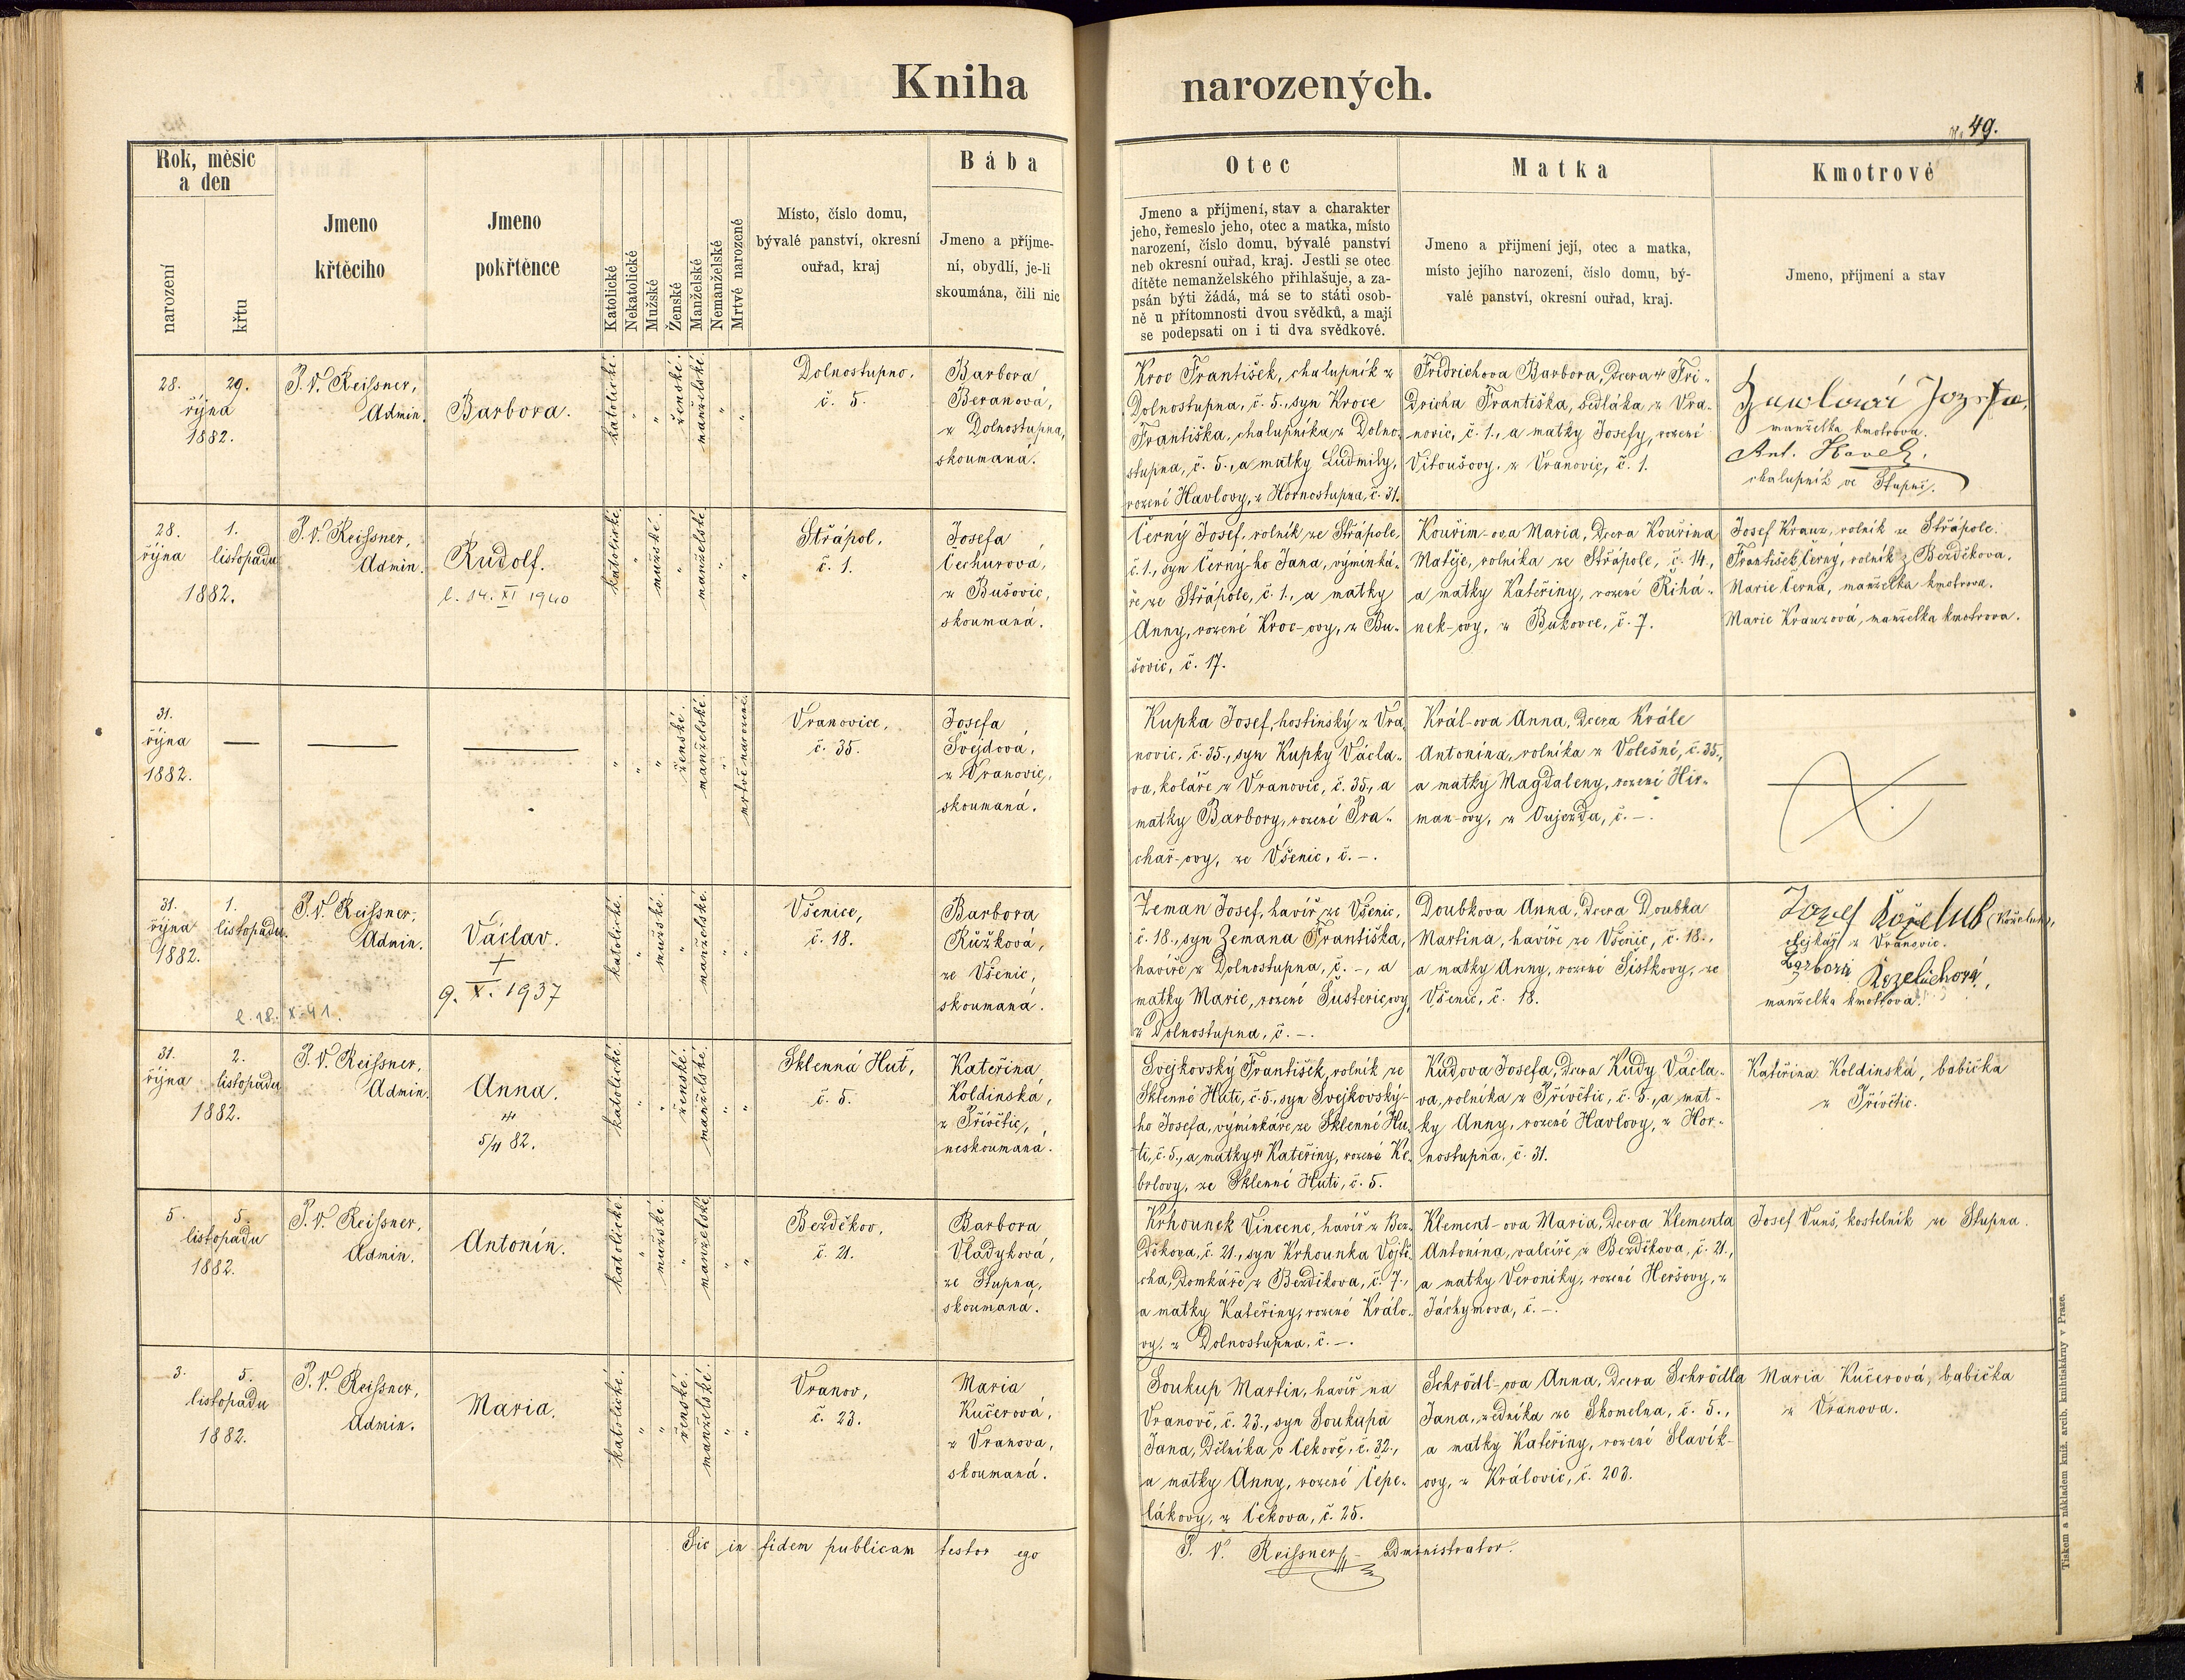 Kniha narozených.
49.
Rok, měsíc a den
narození
křtu
Jmeno křtěcího
Jmeno pokřtěnce
Katolické
Nekatolické
Mužské
Ženské
Manželské
Nemanželské
Mrtvé narozené
Místo, číslo domu,
bývalé panství, okresní
ouřad, kraj
Bába
Jmeno a příjme-
ní, obydlí, je-li
skoumána, čili nic
Otec
Jmeno a příjmení, stav a charakter
jeho, řemeslo jeho, otec a matka, místo
narození, číslo domu, bývalé panství
neb okresní ouřad, kraj. Jestli se otec
dítěte nemanželského přihlašuje, a za-
psán býti žádá, má se to státi osob-
ně u přítomnosti dvou svědků, a mají
se podepsati on i ti dva svědkové.
Matka
Jmeno a přijmení její, otec a matka,
místo jejího narození, číslo domu, bý-
valé panství, okresní ouřad, kraj.
Kmotrové
Jmeno, příjmení a stav
28. 29.
října
1882.
P. V. Reissner,
Admin.
Barbora.
katolické.
ženské.
manželské.
Dolnostupno.
č. 5.
Barbora
Beranová,
z Dolnostupna,
skoumaná.
Kroc František, chalupník z
Dolnostupna, č. 5., syn Kroce
Františka, chalupníka z Dolno-
stupna, č. 5., a matky Ludmily,
rozené Havlovy, z Hornostupna, č. 31.
Fridrichova Barbora, dcera Fri-
dricha Františka, sedláka z Vra-
novic, č. 1., a matky Josefy, rozené
Vitoušovy, z Vranovic, č. 1.
manželka kmotrova.
Ant. Havel,
chalupník ve Stupně.
28. 1.
října listopadu
1882.
P. V. Reissner,
Admin.
Rudolf.
l. 14. XI 1940
katolické.
mužské.
manželské.
Střápol.
č. 1.
Josefa
Čechurová,
z Bušovic,
skoumaná.
Černý Josef, rolník ze Střápole,
č. 1., syn Černý-ho Jana, výminká-
ře ze Střápole, č. 1., a matky
Anny, rozené Kroc-ovy, z Bu-
šovic, č. 17.
Kouřim-ova Maria, dcera Kouřima
Matěje, rolníka ze Střápole, č. 14.,
a matky Kateřiny, rozené Řihá-
nek-ovy, z Bukovce, č. 7.
Josef Kranz, rolník ze Střápole.
František Černý, rolník z Bezděkova.
Marie Černá, manželka kmotrova.
Marie Kranzová, manželka kmotrova.
31.
října
1882.
ženské.
manželské.
mrtvě narozené.
Vranovice,
č. 35.
Josefa
Švejdová,
z Vranovic,
skoumaná.
Kupka Josef, hostinský z Vra-
novic, č. 35., syn Kupky Václa-
va, koláře z Vranovic, č. 35., a
matky Barbory, rozené Pra-
chař-ovy, ze Všenic, č. –.
Král-ova Anna, dcera Krále
Antonína, rolníka z Volešné, č. 35.,
a matky Magdaleny, rozené Hir-
man-ovy, z Oujezda, č. –.
31. 1.
října listopadu.
1882.
l. 18. X. 41.
P. V. Reissner,
Admin.
Václav.
+
9. X. 1937
katolické.
mužské.
manželské.
Všenice,
č. 18.
Barbora
Růžková,
ze Všenic,
skoumaná.
Zeman Josef, havíř ze Všenic,
č. 18., syn Zemana Františka,
havíře z Dolnostupna, č. –, a
matky Marie, rozené Šustericovy,
z Dolnostupna, č. –.
Doubkova Anna, dcera Doubka
Martina, havíře ze Všenic, č. 18.,
a matky Anny, rozené Šistkovy, ze
Všenic, č. 18.
Jozef Koželuh (Koželuh),
z Vranovic.
Barbora Kozeluchová,
manželka kmotrova.
31. 2.
října listopadu
1882.
P. V. Reissner,
Admin.
Anna.
5/11 82.
katolické.
ženské.
manželské.
Sklenná Huť,
č. 5.
Kateřina
Koldinská,
z Přívětic,
neskoumaná.
Svejkovský František, rolník ze
Sklenné Huti, č. 5., syn Svejkovský-
ho Josefa, výminkáře ze Sklenné Hu-
ti, č. 5., a matky Kateřiny, rozené Ke-
brlovy, ze Sklenné Huti, č. 5.
Kudova Josefa, dcera Kudy Václa-
va, rolníka z Přívětic, č. 5., a mat-
ky Anny, rozené Havlovy, z Hor-
nostupna, č. 31.
Kateřina Koldinská, babička
z Přívětic.
5. 5.
listopadu
1882.
P. V. Reissner,
Admin.
Antonín.
katolické.
mužské.
manželské.
Bezděkov,
č. 21.
Barbora
Vladyková,
ze Stupna,
skoumaná.
Krhounek Vincenc, havíř z Bez-
děkova, č. 21., syn Krhounka Vojtě-
cha, domkáře z Bezděkova, č. 7.,
a matky Kateřiny, rozené Králo-
vy, z Dolnostupna, č. –.
Klement-ova Maria, dcera Klementa
Antonína, valcíře z Bezděkova, č. 21.,
a matky Veroniky, rozené Heršovy, z
Jáchymova, č. –.
Josef Vuns, kostelník ze Stupna.
3. 5.
listopadu
1882.
P. V. Reissner,
Admin.
Maria.
katolické.
ženské.
manželské.
Vranov,
č. 23.
Maria
Kučerová,
z Vranova,
skoumaná.
Soukup Martin, havíř na
Vranově, č. 23., syn Soukupa
Jana, dělníka v Cekově, č. 32.,
a matky Anny, rozené Čepe-
lákovy, z Cekova, č. 25.
Schrödl-ova Anna, dcera Schrödla
Jana, zedníka ze Skomelna, č. 5.,
a matky Kateřiny, rozené Slavík-
ovy, z Královic, č. 203.
Maria Kučerová, babička
z Vranova.
Sic in fidem publicam testor ego P. V. Reissner administrator.
Tiskem a nákladem kníž. arcib. knihtiskárny v Praze.